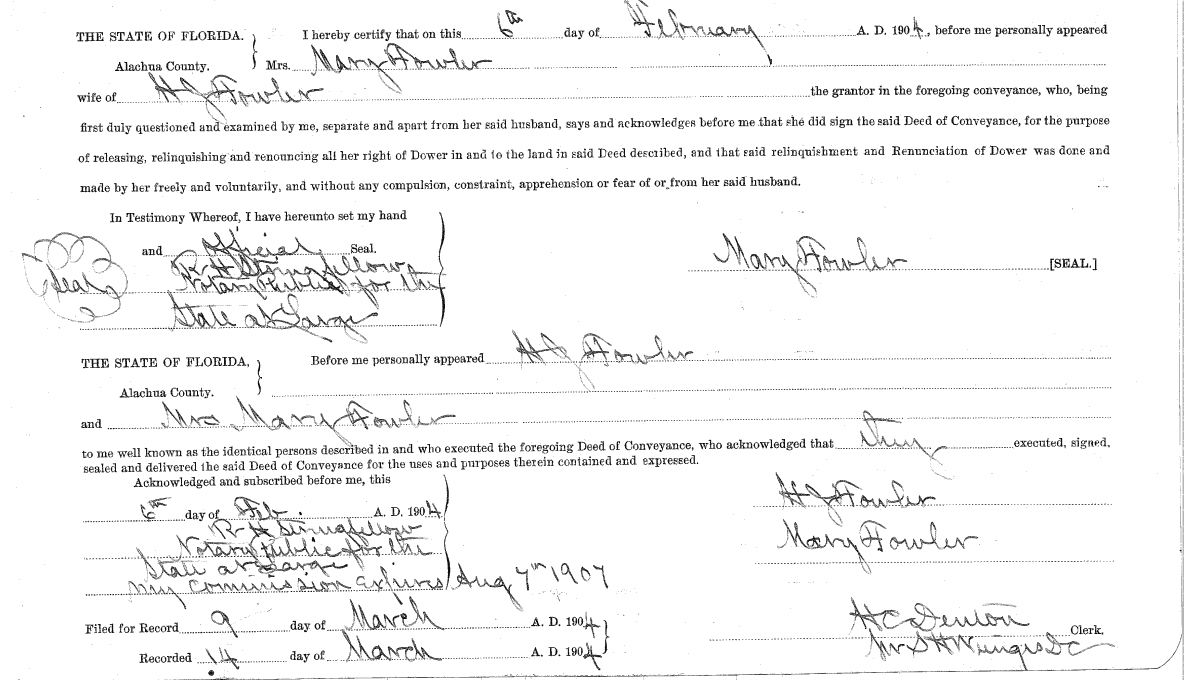 THE STATE OF FLORIDA. } I hereby certify that on this 6th day of February A. D. 1904, before me personally appeared
Alachua County. Mrs. Mary Fowler
wife of H J Fowler the grantor in the foregoing conveyance, who, being
first duly questioned and examined by me, separate and apart from her said husband, says and acknowledges before me that she did sign the said Deed of Conveyance, for the purpose
of releasing, relinquishing and renouncing all her right of Dower in and to the land in said Deed described, and that said relinquishment and Renunciation of Dower was done and
made by her freely and voluntarily, and without any compulsion, constraint, apprehension or fear of or from her said husband.
In Testimony Whereof, I have hereunto set my hand
and official Seal.
Mary Fowler [SEAL.]
R H Stringfellow
Seal
Notary Public for the
State at Large
THE STATE OF FLORIDA, } Before me personally appeared H J Fowler
Alachua County.
and Mrs Mary Fowler
to me well known as the identical persons described in and who executed the foregoing Deed of Conveyance, who acknowledged that they executed, signed,
sealed and delivered the said Deed of Conveyance for the uses and purposes therein contained and expressed.
Acknowledged and subscribed before me, this
6th day of Feb. A. D. 1904
H J Fowler
R H Stringfellow
Notary Public for the
Mary Fowler
State at Large
My Commission Expires Aug 7th 1907
Filed for Record 9 day of March A. D. 1904
H C Denton Clerk,
Recorded 14 day of March A. D. 1904
S H DC